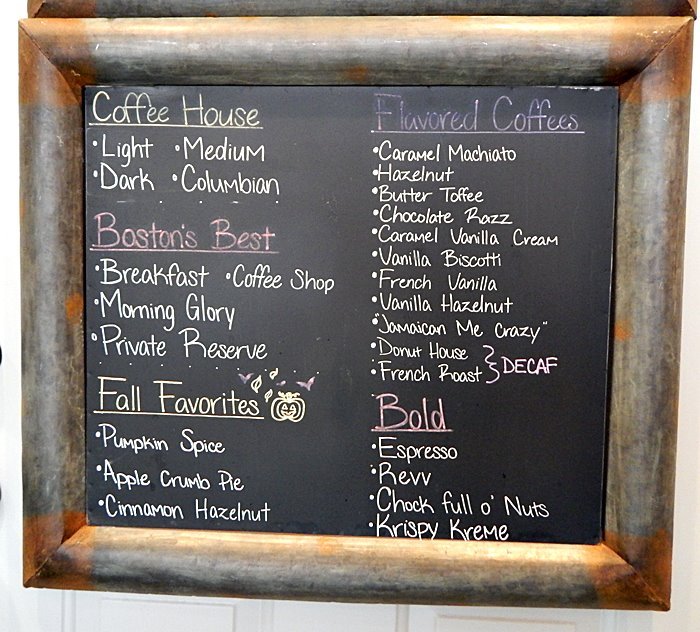 Coffee House
•Light •Medium
•Dark •Columbian
Boston's Best
•Breakfast •Coffee Shop
•Morning Glory
•Private Reserve
Fall Favorites
•Pumpkin Spice
•Apple Crumb Pie
•Cinnamon Hazelnut
Flavored Coffees
•Caramel Machiato
•Hazelnut
•Butter Toffee
•Chocolate Razz
•Caramel Vanilla Cream
•Vanilla Biscotti
•French Vanilla
•Vanilla Hazelnut
•"Jamaican Me Crazy"
•Donut House
•French Roast } DECAF
Bold
•Espresso
•Revv
•Chock full o' Nuts
•Krispy Kreme